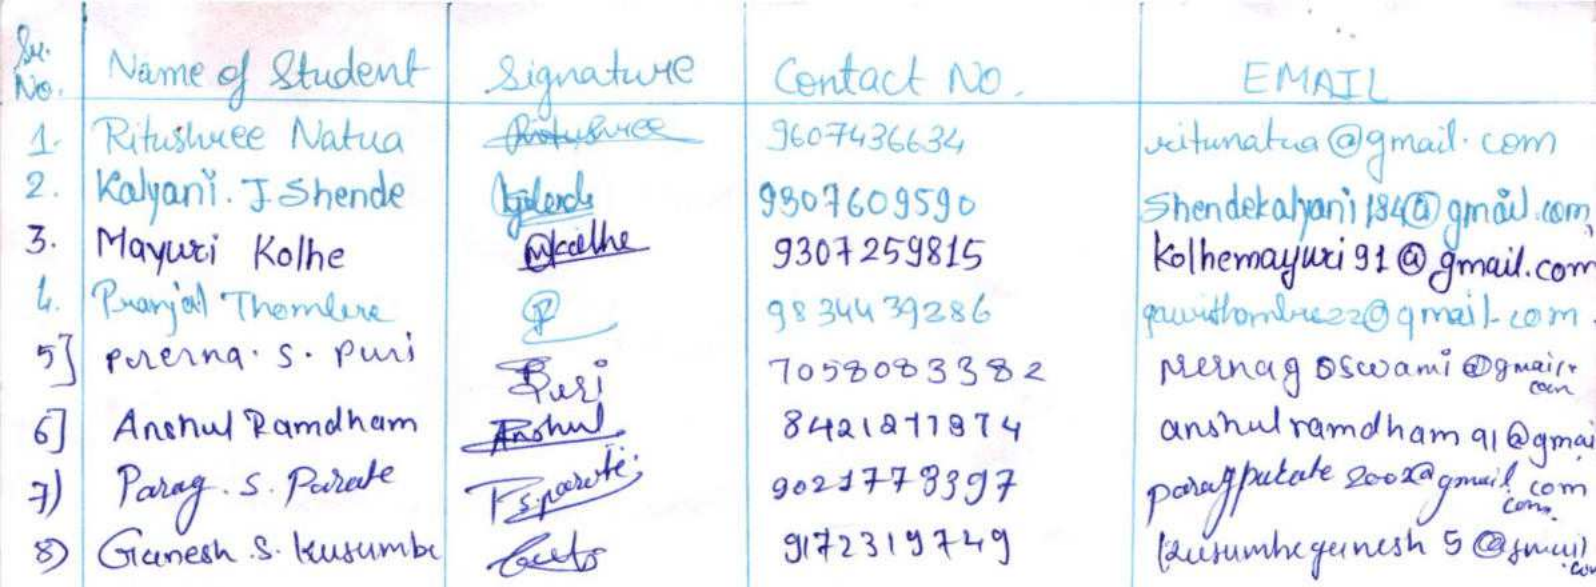 Sr. No. Name of Student Signature Contact No. EMAIL
1. Ritushree Natua Ritushree 9607436634 ritunatua@gmail.com
2. Kalyani. J Shende 9307609590 Shendekalyani184@gmail.com
3. Mayuri Kolhe Mkolhe 9307259815 kolhemayuri91@gmail.com
4. Pranjal Thombre 9834439286
5] prerna. S. puri Puri 7058083382 prernagoswami@gmail.com
6] Anshul Ramdham Anshul 8421811874 anshulramdham91@gmai
7) Parag. S. Parate Psparate. 9021778397 2002@gmail.com
8) Ganesh .S. kusumbe 9172319749 kusumbeganesh5@gmail.com